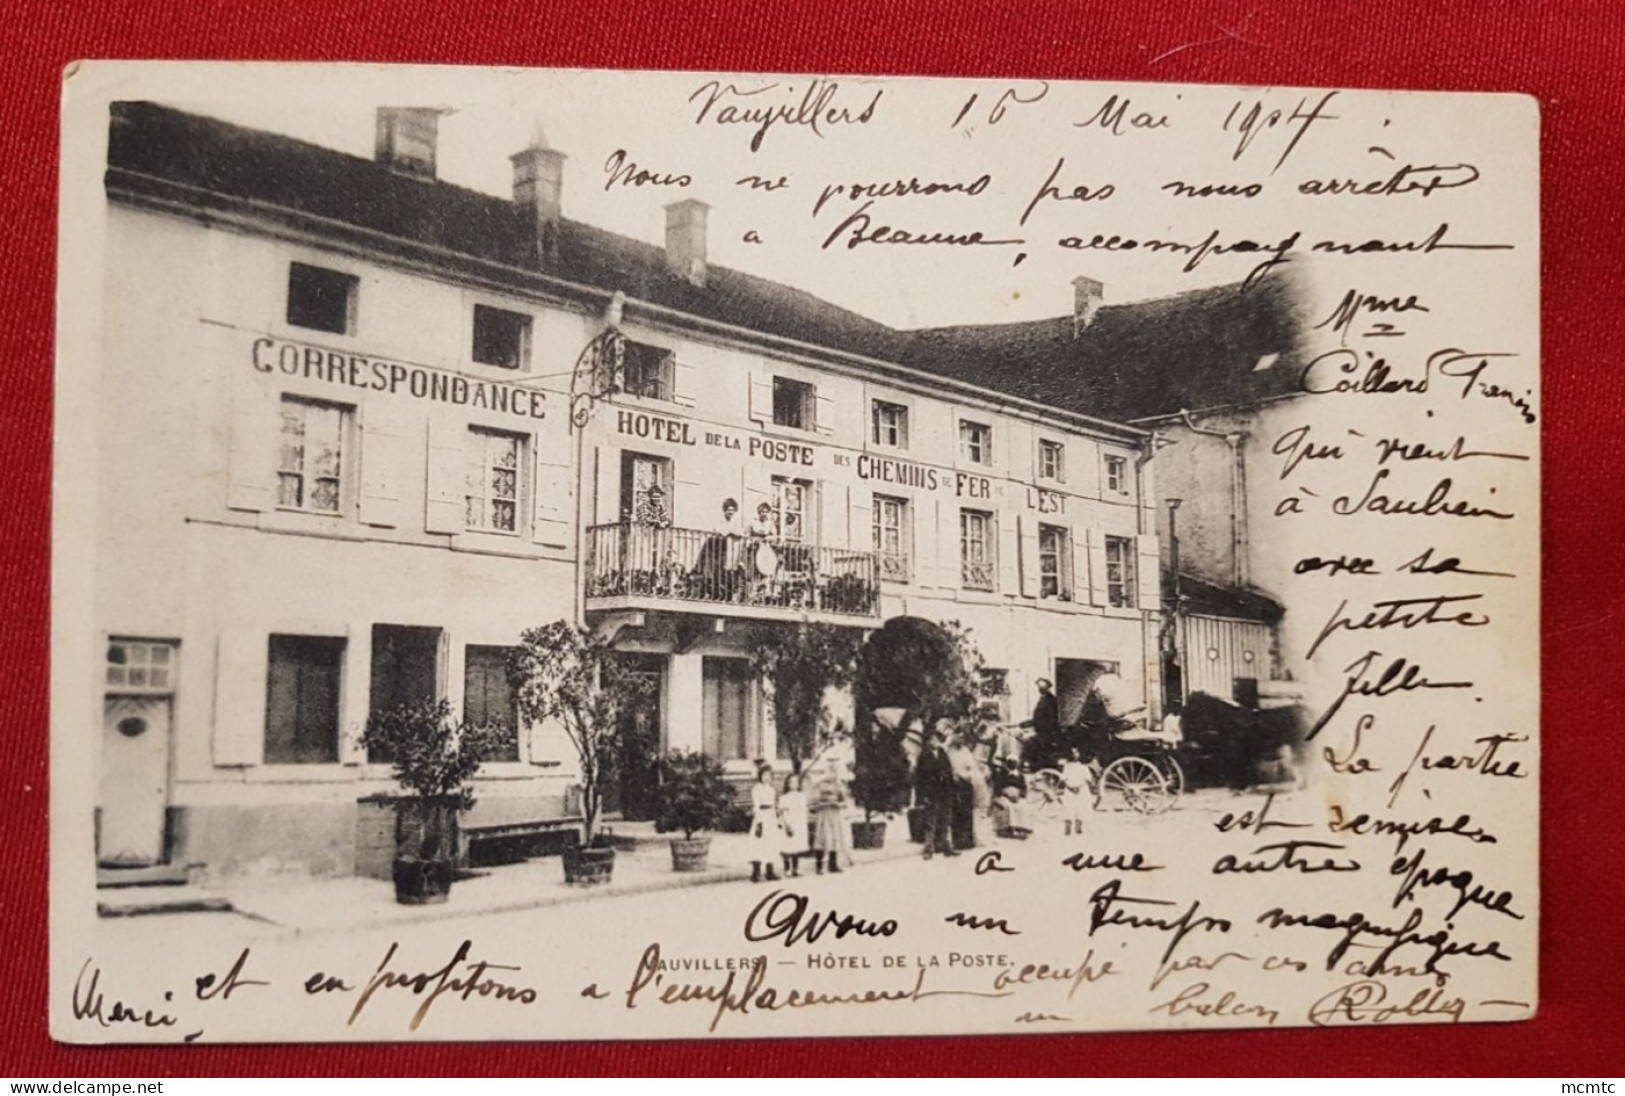 Vauvillers 16 Mai 1904.
Nous ne pourrons pas nous arrêter
a Beaune, accompagnant
Mme
Coillard
qui vient
à Saulieu
avec sa
petite
fille.
La partie
est remise
a une autre époque
Avons un temps magnifique
et en profitons a l'emplacement occupé par ces ames
Merci
un balcon
CORRESPONDANCE
HOTEL DE LA POSTE DES CHEMINS DE FER DE L'EST
VAUVILLERS — HÔTEL DE LA POSTE.
mcmtc